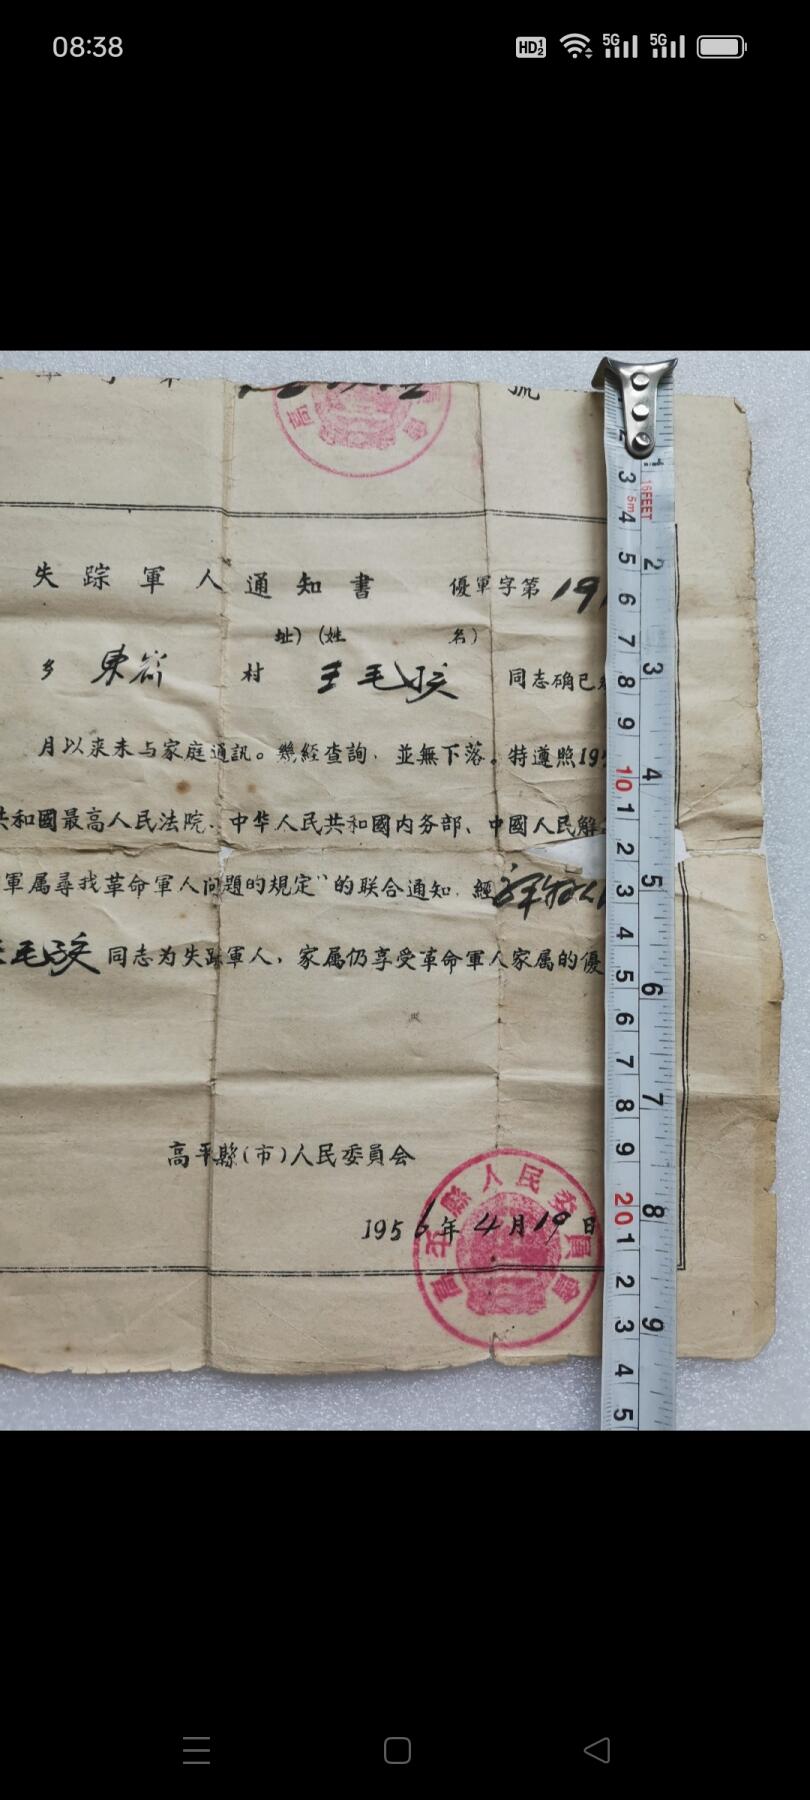 08:38
HD 1 2 5G 5G
號
高 會
失踪軍人通知書 優軍字第191
址）（姓 名）
乡 東 村 王毛孩 同志确已
月以来未与家庭通訊。幾經查詢，並無下落。特遵照195
共和國最高人民法院、中华人民共和國内务部、中國人民解
軍属尋找革命軍人问題的規定”的联合通知，經
毛孩 同志为失踪軍人，家属仍享受革命軍人家属的優
高平縣（市）人民委員会
1956年4月19日
高平縣人民委員會
3 4 5 6 7 8 9 10 1 2 3 4 5 6 7 8 9 20 1 2 3 4 5
5m 16FEET
1 2 3 4 5 6 7 8 9